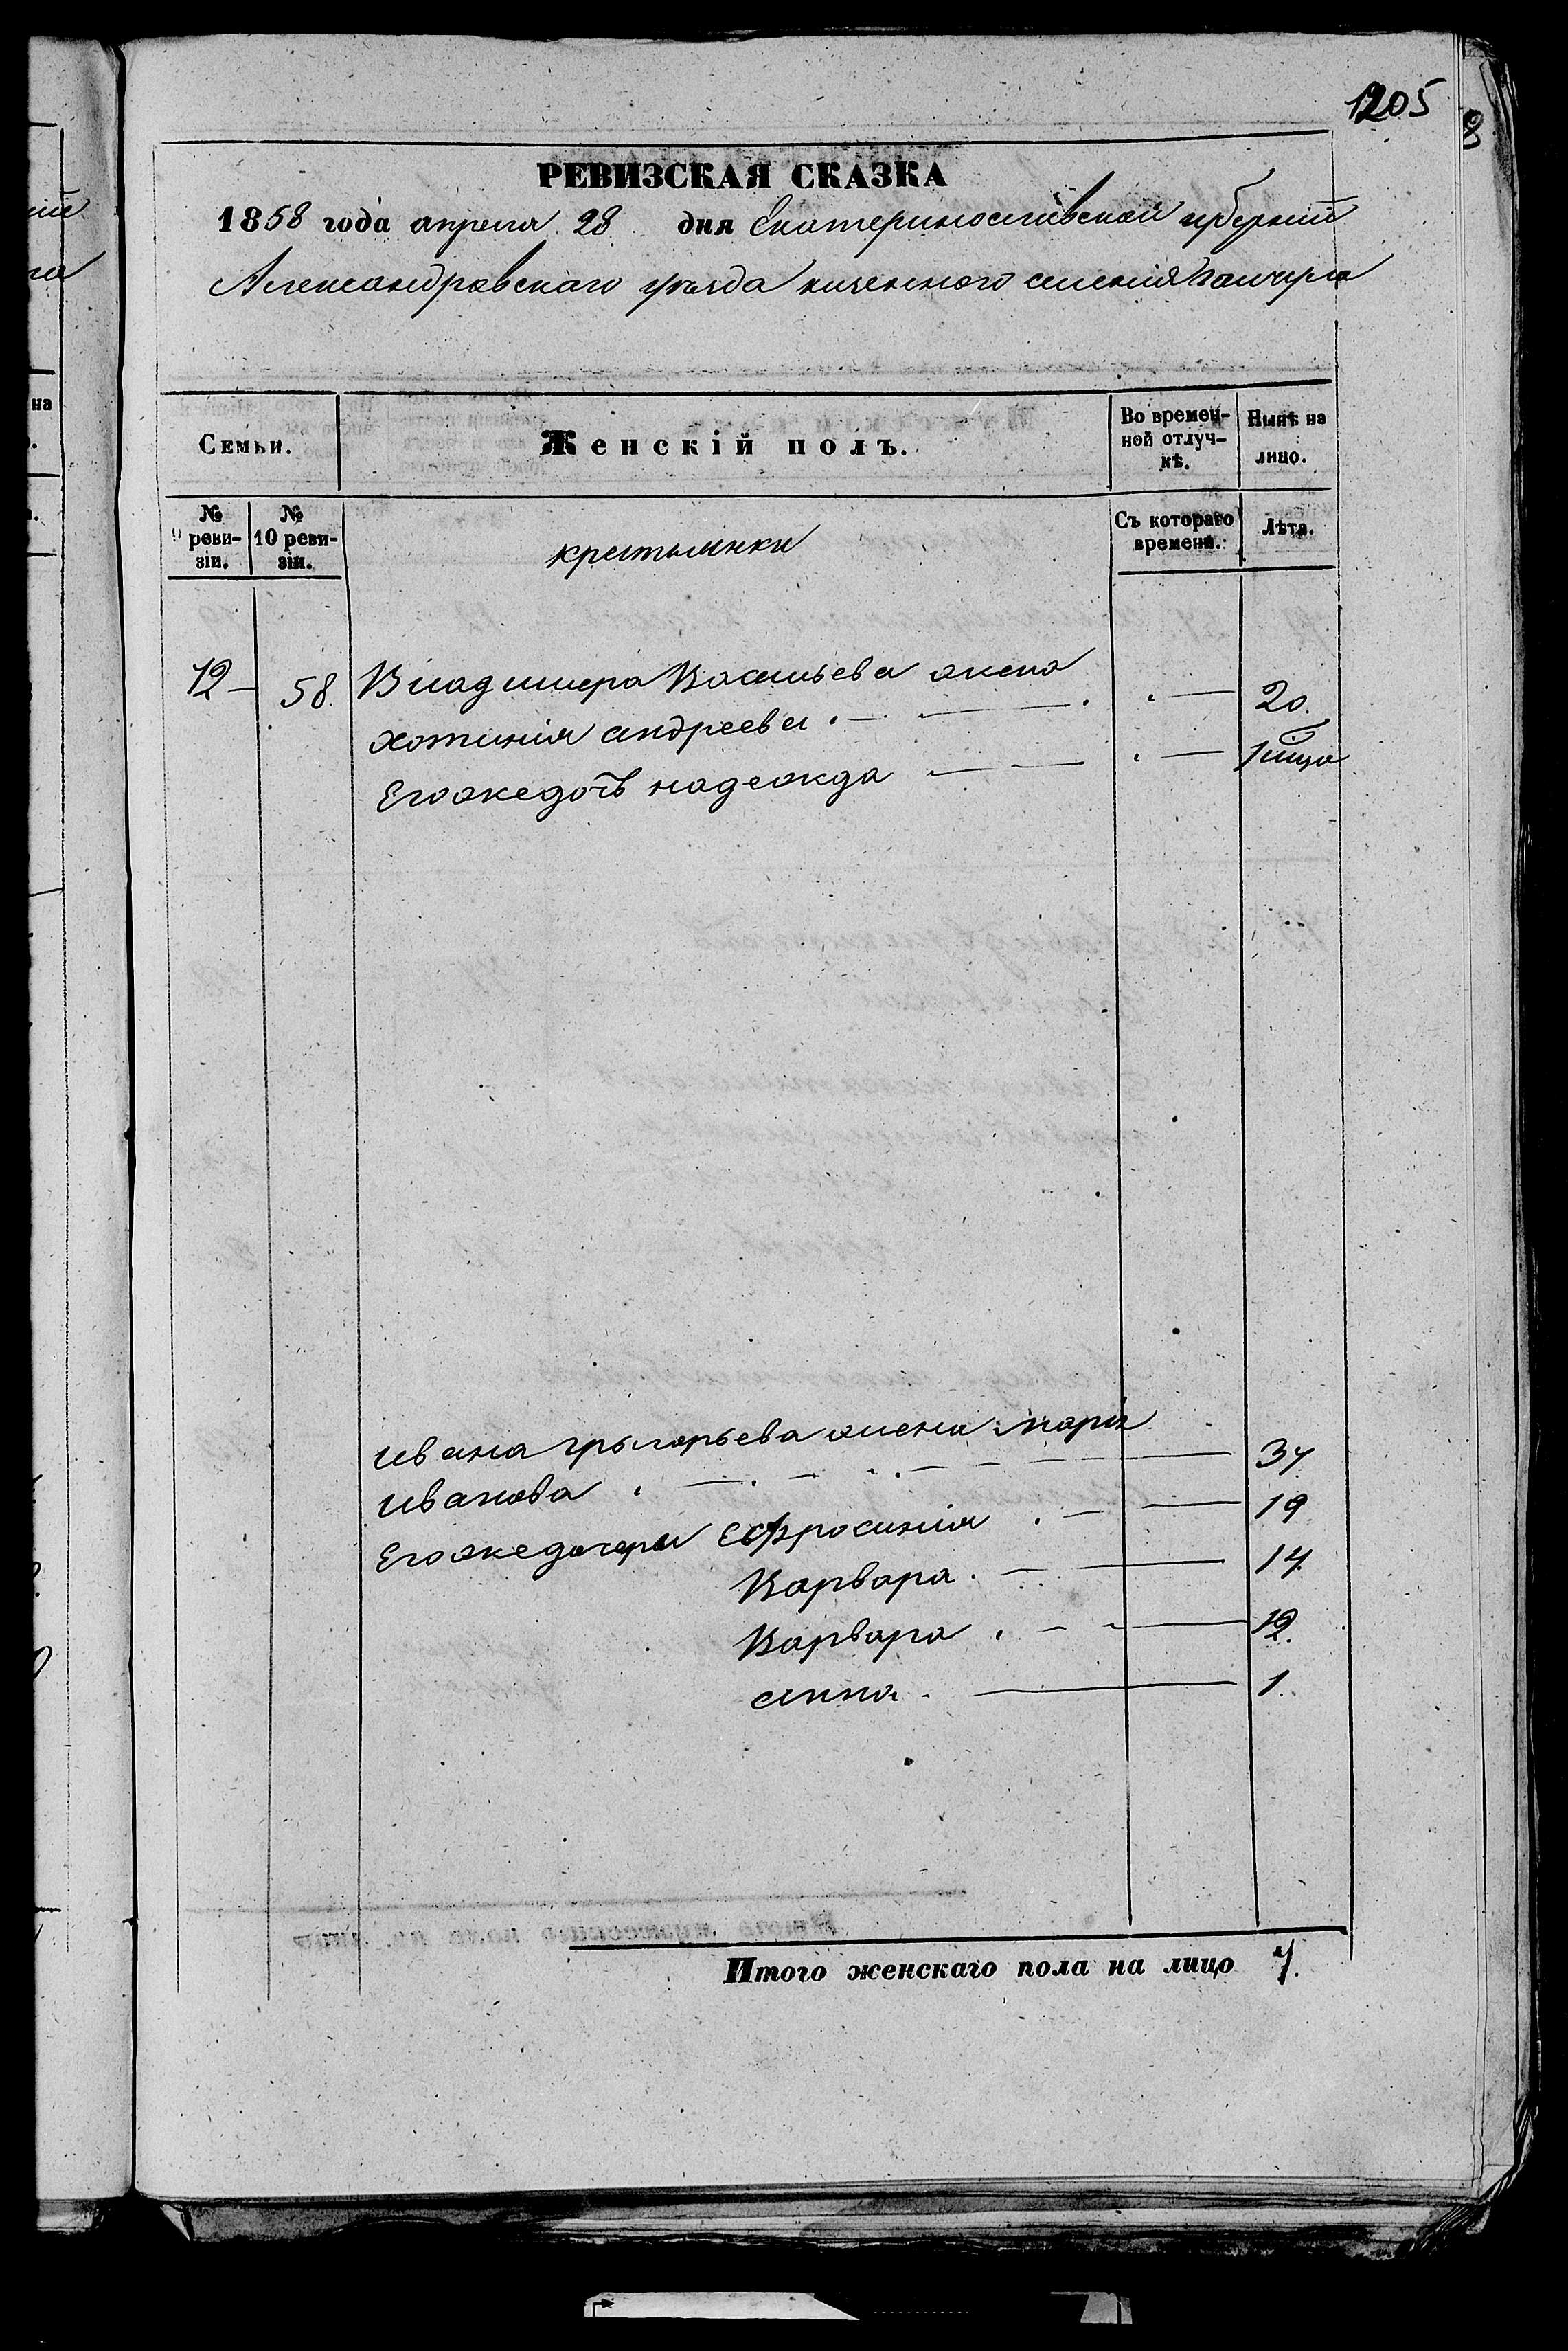 1205
РЕВИЗСКАЯ СКАЗКА
1858 года апреля 28 дня Екатеринославской губернии
Александровскаго уезда казенного селения
Семьи.
Женскій полъ.
Во времен-
ной отлуч-
кѣ.
Нынѣ на
лицо.
№
9 реви-
зіи.
№
10 реви-
зіи.
крестьянки
Съ котораго
времени.
Лѣта.
12 — 58. Владимера Васильева жена
хотиния андреева 20.
Егоже дочь надежда 1
ивана григорьева жена мария
иванова 37
Егоже дочери Ефросиния 19
Варвара 14
Варвара 12.
анна 1.
Итого женскаго пола на лицо 7.